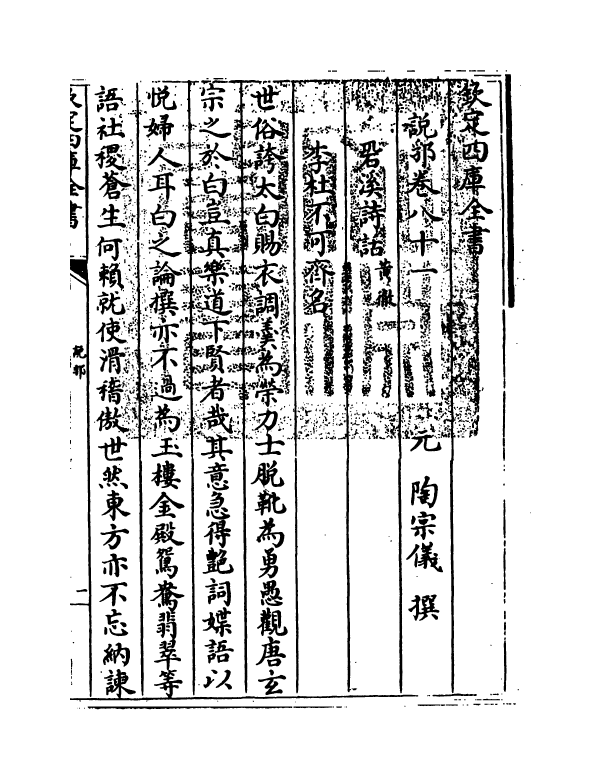 欽定四庫全書
說郛卷八十一 元 陶宗儀 撰
䂬溪詩話 黃徹
李杜不可齊名
世俗誇太白賜衣調羹為榮力士脱靴為勇愚觀唐玄
宗之於白豈真樂道下賢者哉其意急得艶詞媟語以
悦婦人耳白之論撰亦不過為玉樓金殿鴛鴦翡翠等
語社稷蒼生何賴就使滑稽傲世然東方亦不忘納諫
欽定四庫全書
說郛
二